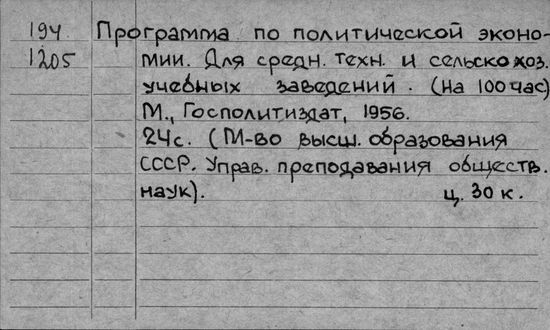 194 Программа по политической эконо-
1205 мии. Для средн. техн. и сельскохоз.
учебных заведений. (На 100 час)
М., Госполитиздат, 1956.
24с. (М-во высш. образования
СССР. Управ. преподавания обществ.
наук). ц. 30 к.